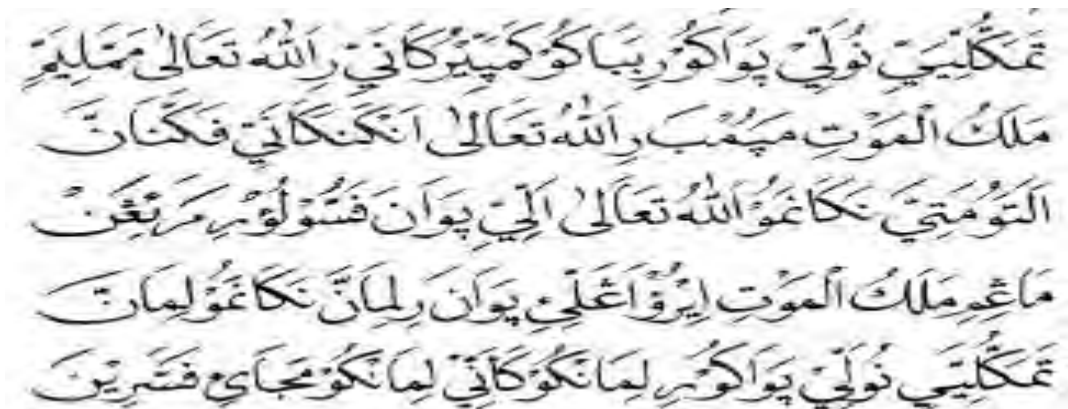 تَمَكُّلِّيَيْ نُوَلِّيْ پَوَاكُوْرِ بِبَاكُوْ كَمَّپِيْرُكَانَيْ رِاللهُ تَعَالىٰ مَمَّلِيَمِّ
مَلَكُ الْمَوْتِ مَپُمْبَ رِاللهُ تَعَالىٰ اَنْكَنَكَانَيْ فَكَّنَانَّ
نَكَاغَمُوْ اللهُ تَعَالىٰ اَلِّيْ پَوَانَ فَسُّوْلُوْرِ
مَلَكُ الْمَوْتِ اِيْرُؤْ اَڠَلِّئِ پَوَانَ رِلِمَانَّ نَكَاغَمُوْ لِمَانَّ
تَمَكُّلِّيَيْ نُوَلِّيْ پَوَاكُوْرِ لِمَانْكُوْ كَانَيْ لِمَانْكُوْ مَجَايْ فَسَّرِيْنَ